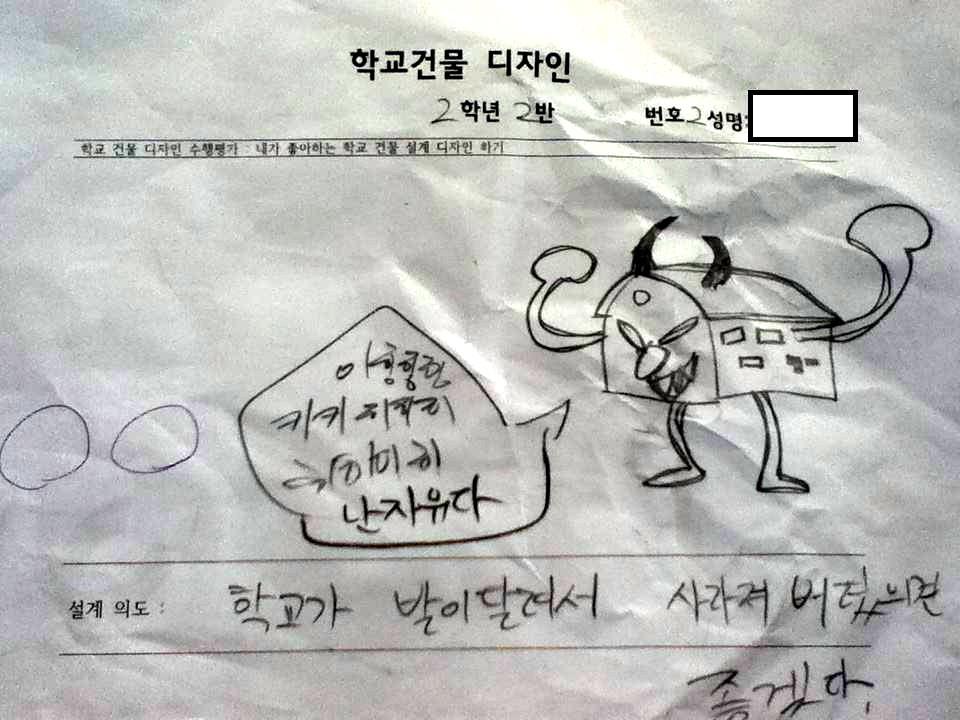 학교건물 디자인
2학년 2반 번호 2 성명:
학교 건물 디자인 수행평가 : 내가 좋아하는 학교 건물 설계 디자인 하기
카키
난 자유다
설계 의도 : 학교가 발이달려서 사라져 버렸으면
좋겠다.